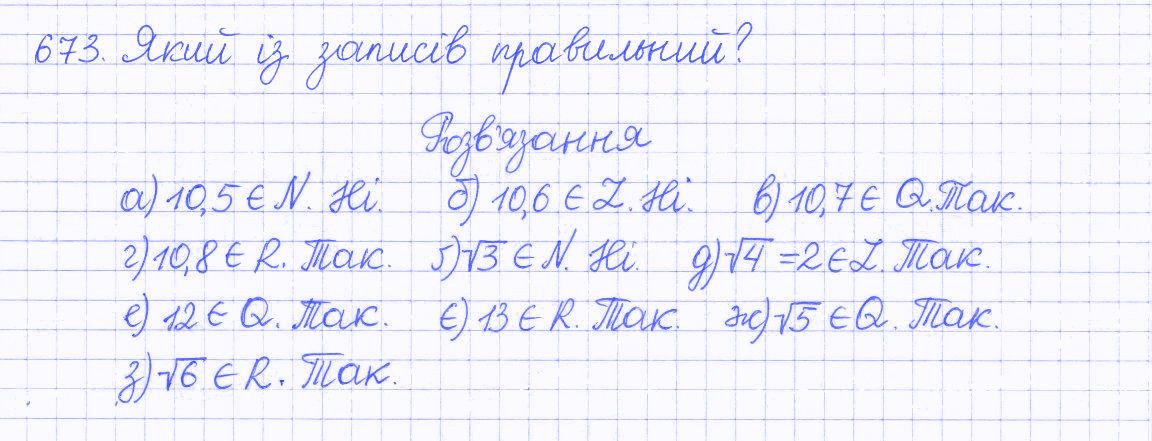 673. Який із записів правильний?
Розв'язання
а) 10,5 ∈ N. Ні. б) 10,6 ∈ Z. Ні. в) 10,7 ∈ Q. Так.
г) 10,8 ∈ R. Так. ґ) √3 ∈ N. Ні. д) √4 = 2 ∈ Z. Так.
е) 12 ∈ Q. Так. є) 13 ∈ R. Так. ж) √5 ∈ Q. Так.
з) √6 ∈ R. Так.